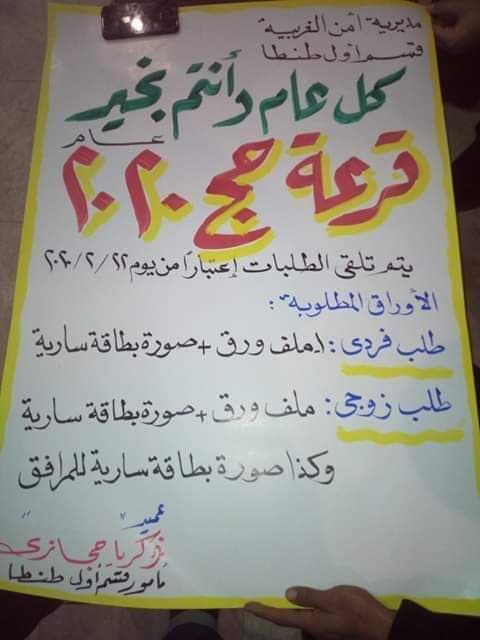 مديرية أمن الغربية
قسم أول طنطا
كل عام وأنتم بخير
قرعة حج عام ٢٠٢٠
يتم تلقى الطلبات إعتباراً من يوم ٢٢/٢/٢٠٢٠
الأوراق المطلوبة:
طلب فردى: ١. ملف ورق + صورة بطاقة سارية
طلب زوجى: ملف ورق + صورة بطاقة سارية
وكذا صورة بطاقة سارية للمرافق
عميد
زكريا حجازى
مأمور قسم أول طنطا